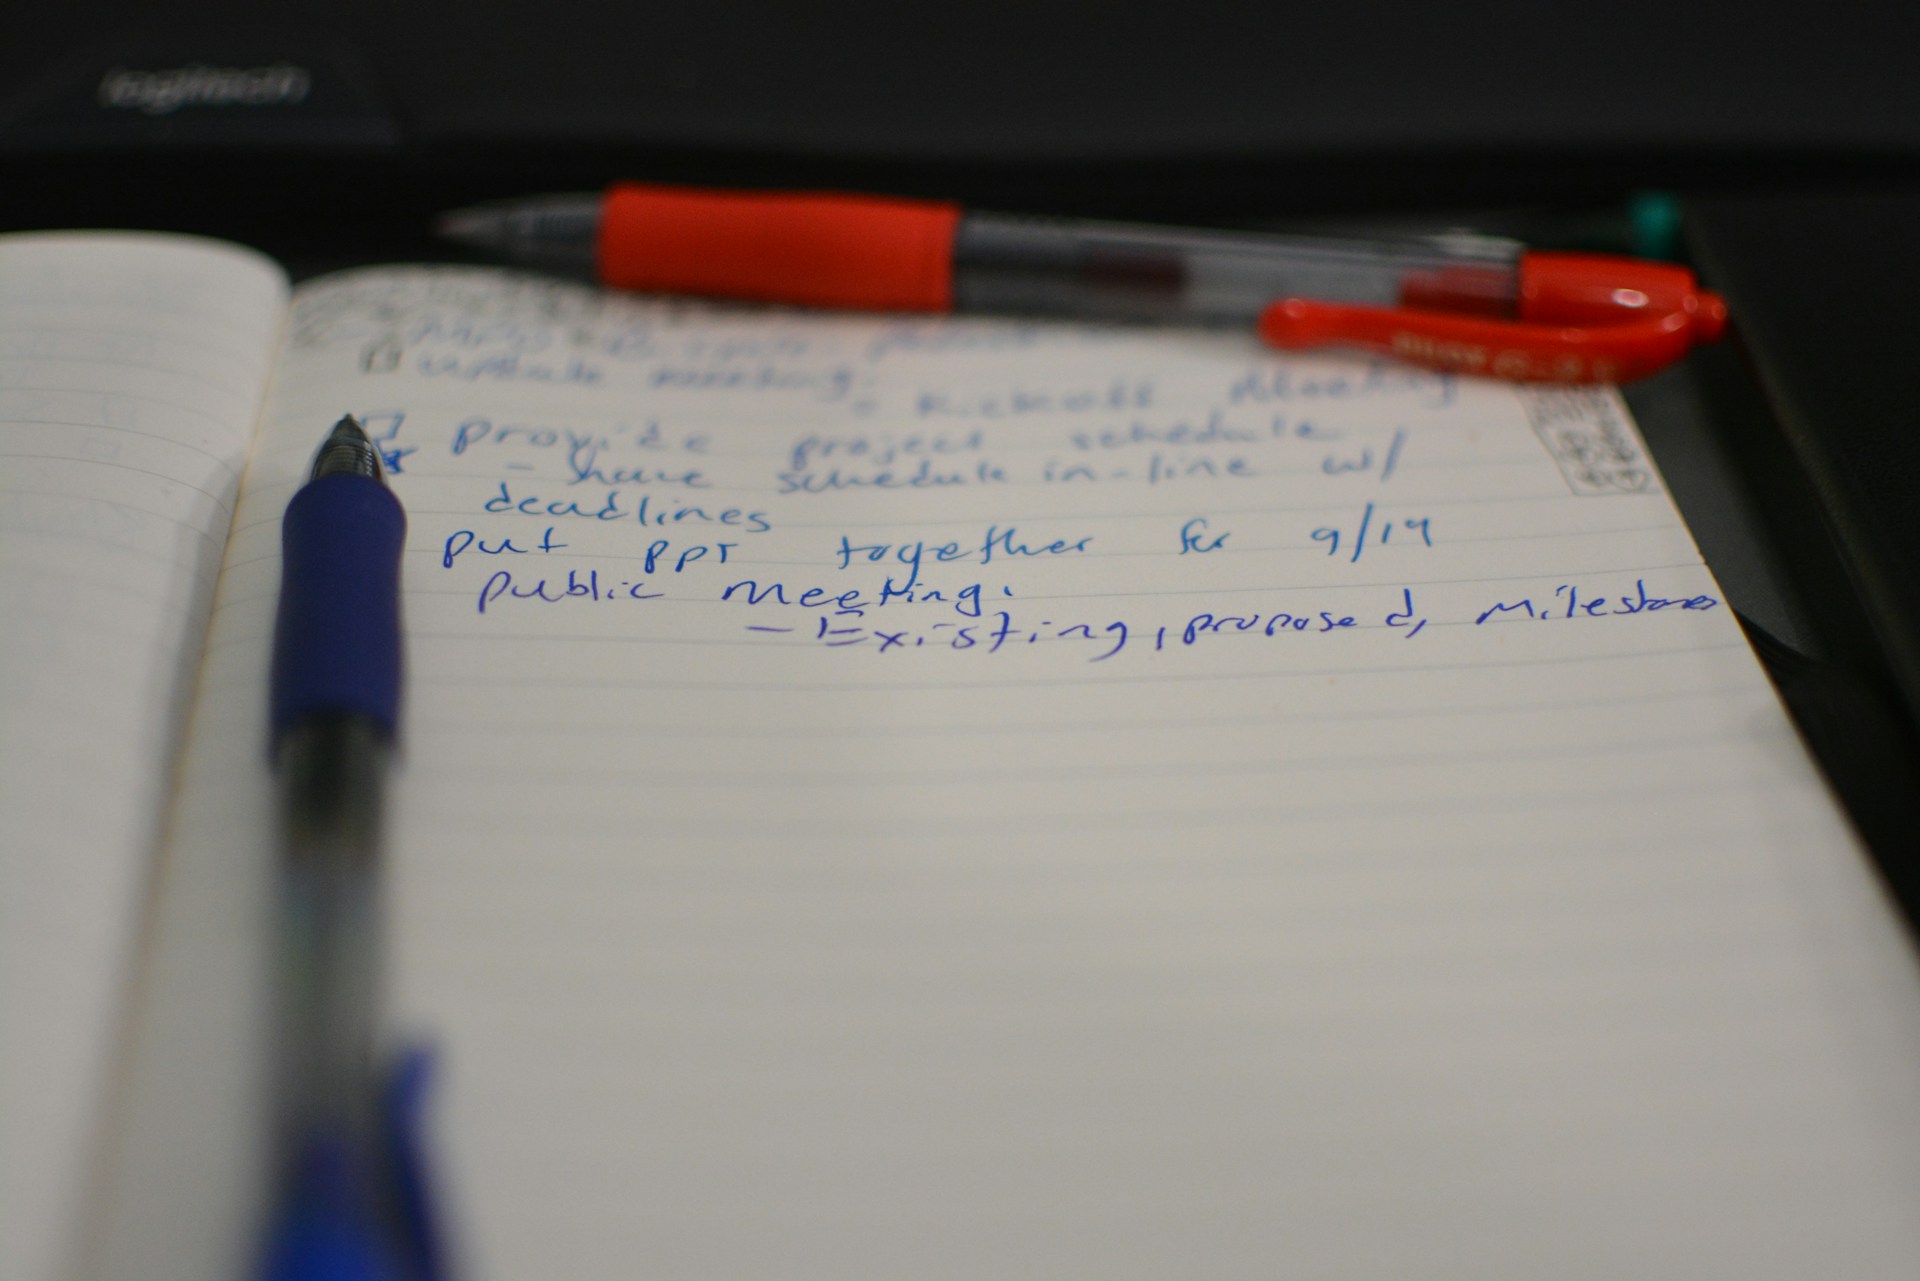 logitech
update meeting.
- Kickoff Meeting
provide project schedule
- share schedule in-line w/
deadlines
put ppt together for 9/19
public meeting:
- Existing, proposed, milestones